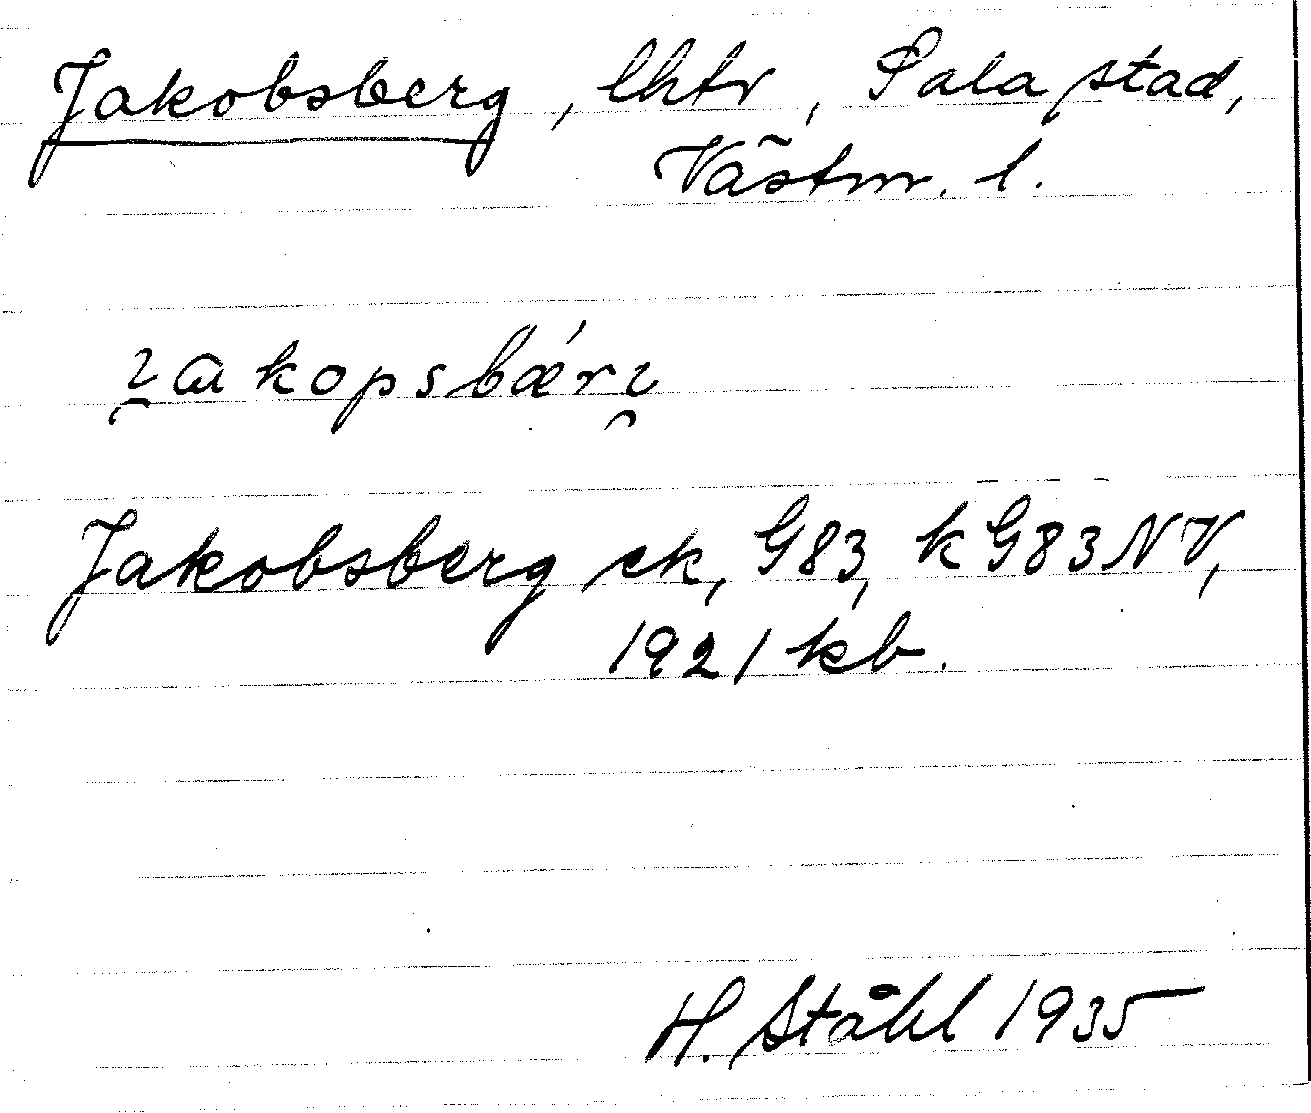 Jakobsberg, lhtr, Sala stad,
Västm. l.
ı̯ɑkopsbǽrı̯
Jakobsberg ek, G83, kG83NV,
1921 kb.
H. Ståhl 1935